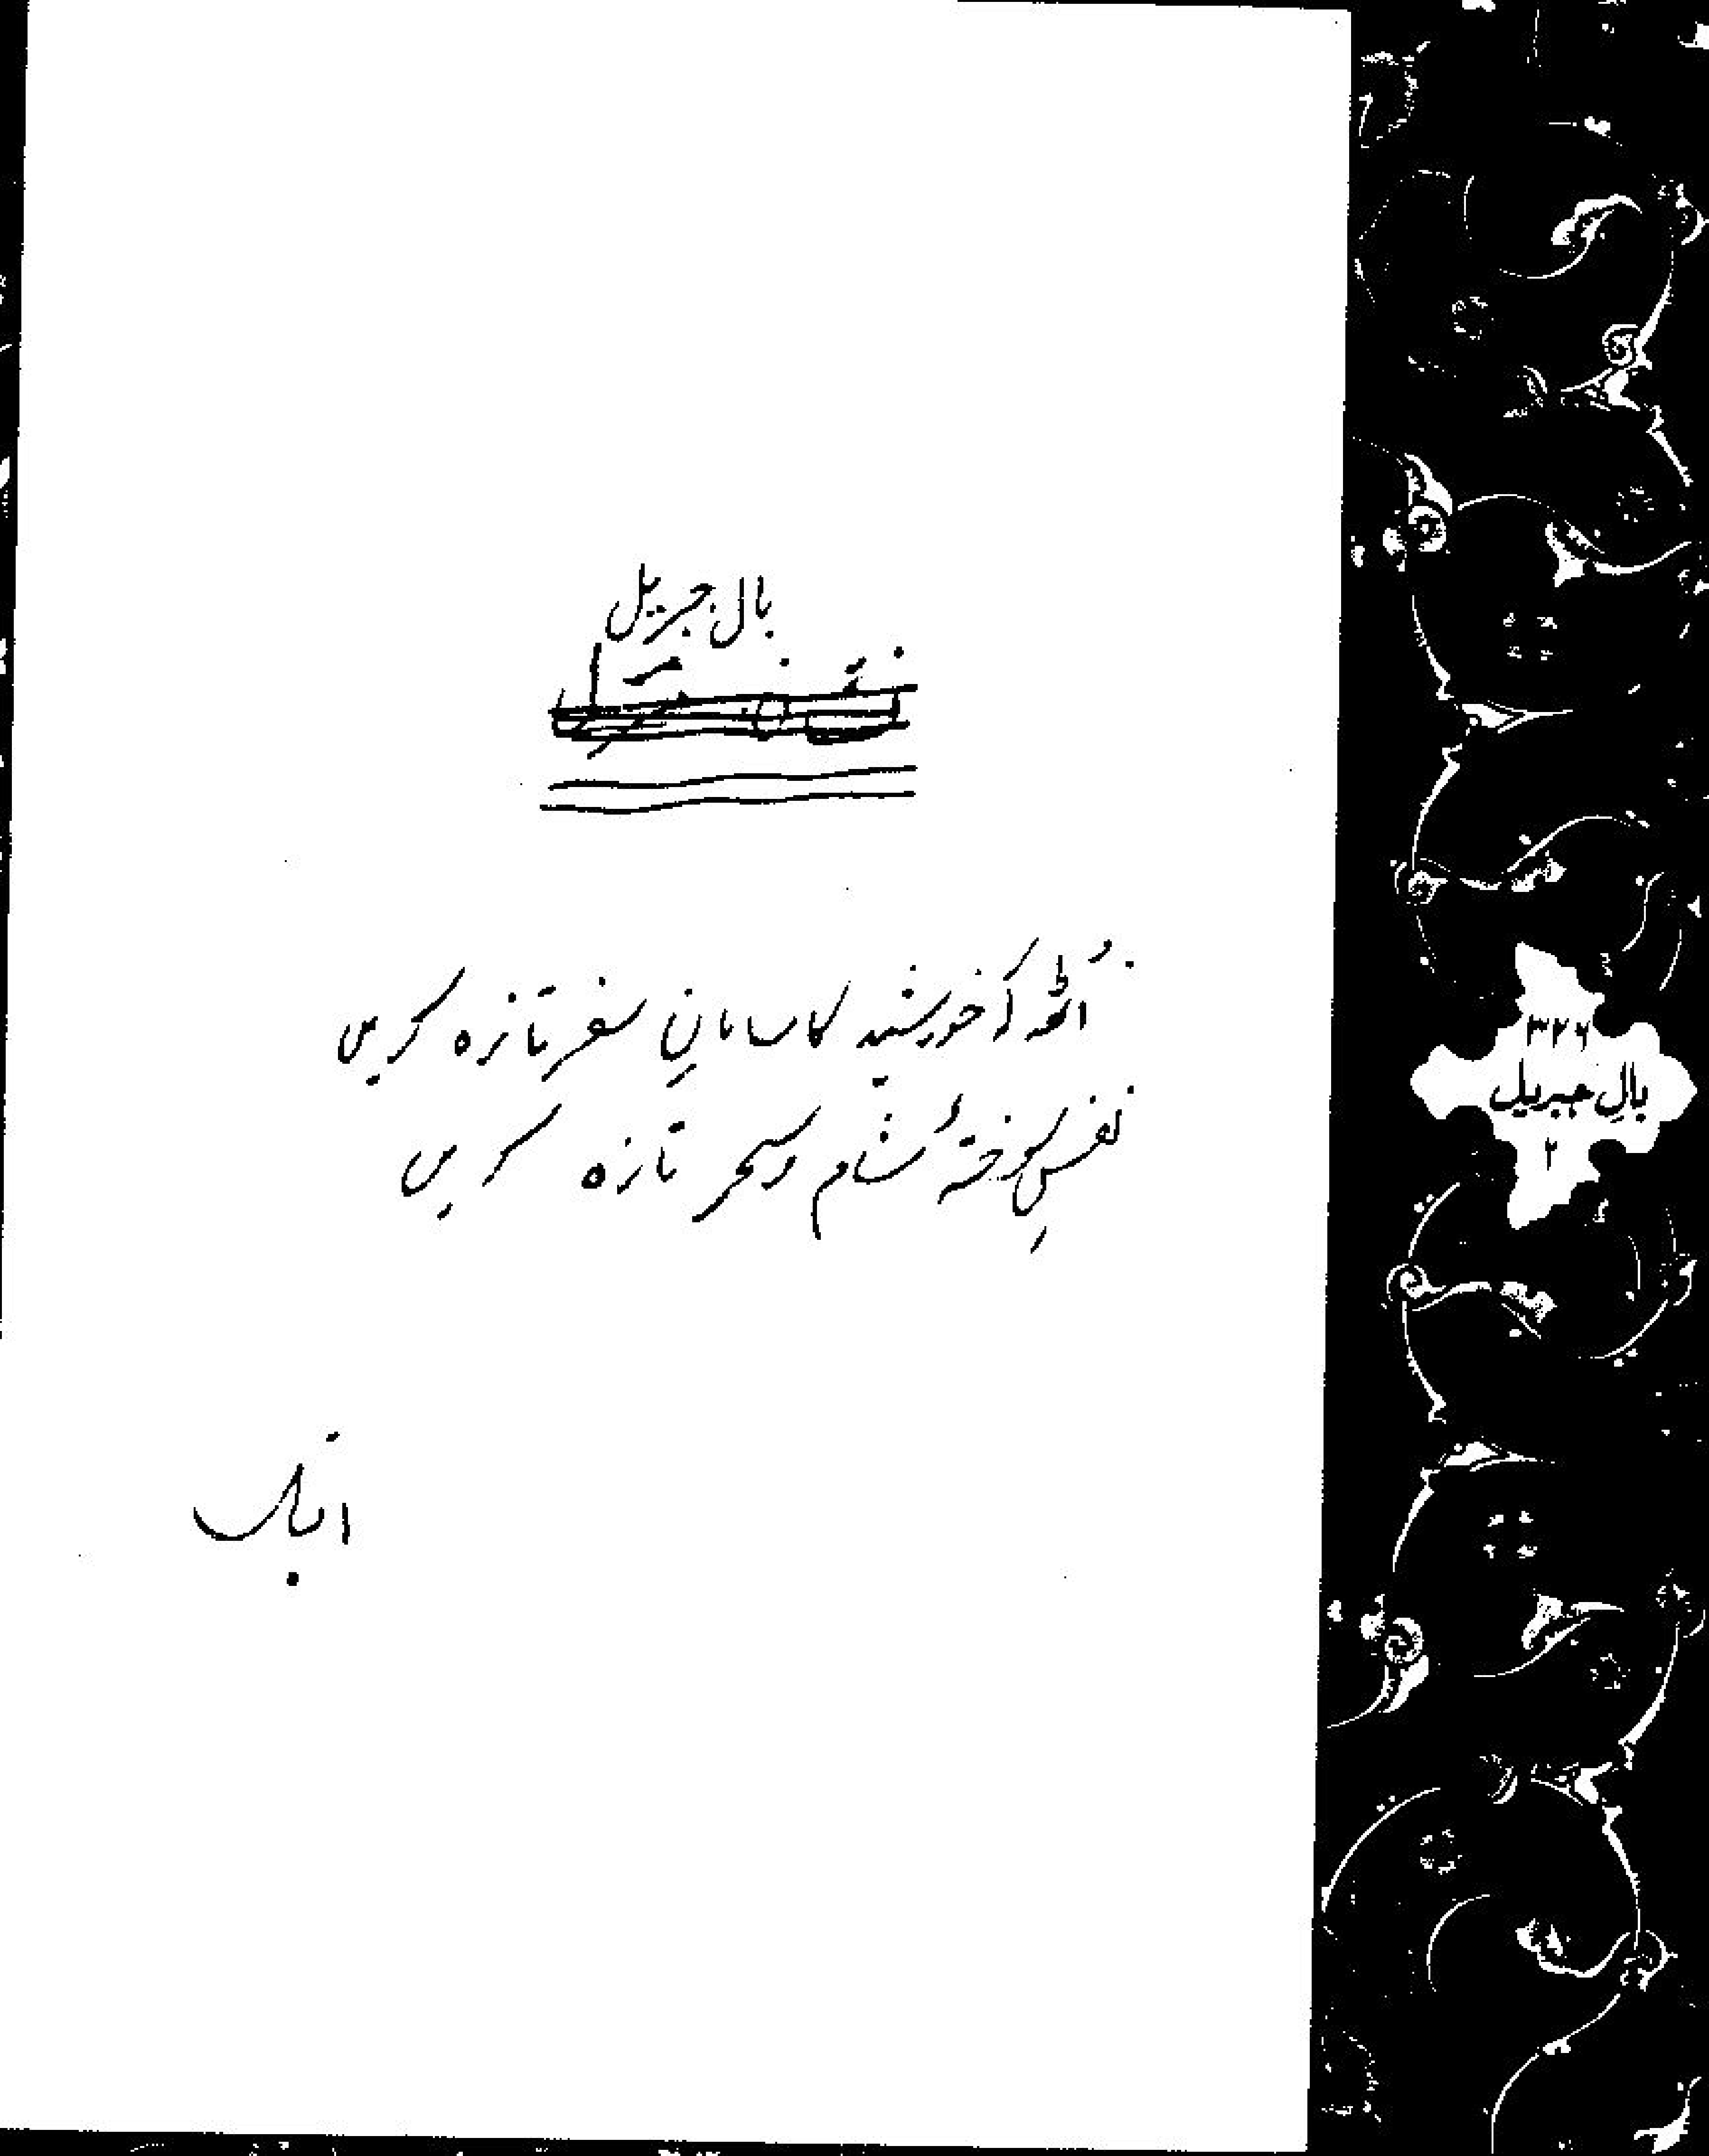 بال جبریل
اُٹھ کہ خورشید کا سامانِ سفر تازہ کریں
نفسِ سوختۂ شام و سحر تازہ کریں
اقبال
۳۲۶
بالِ جبریل
۲